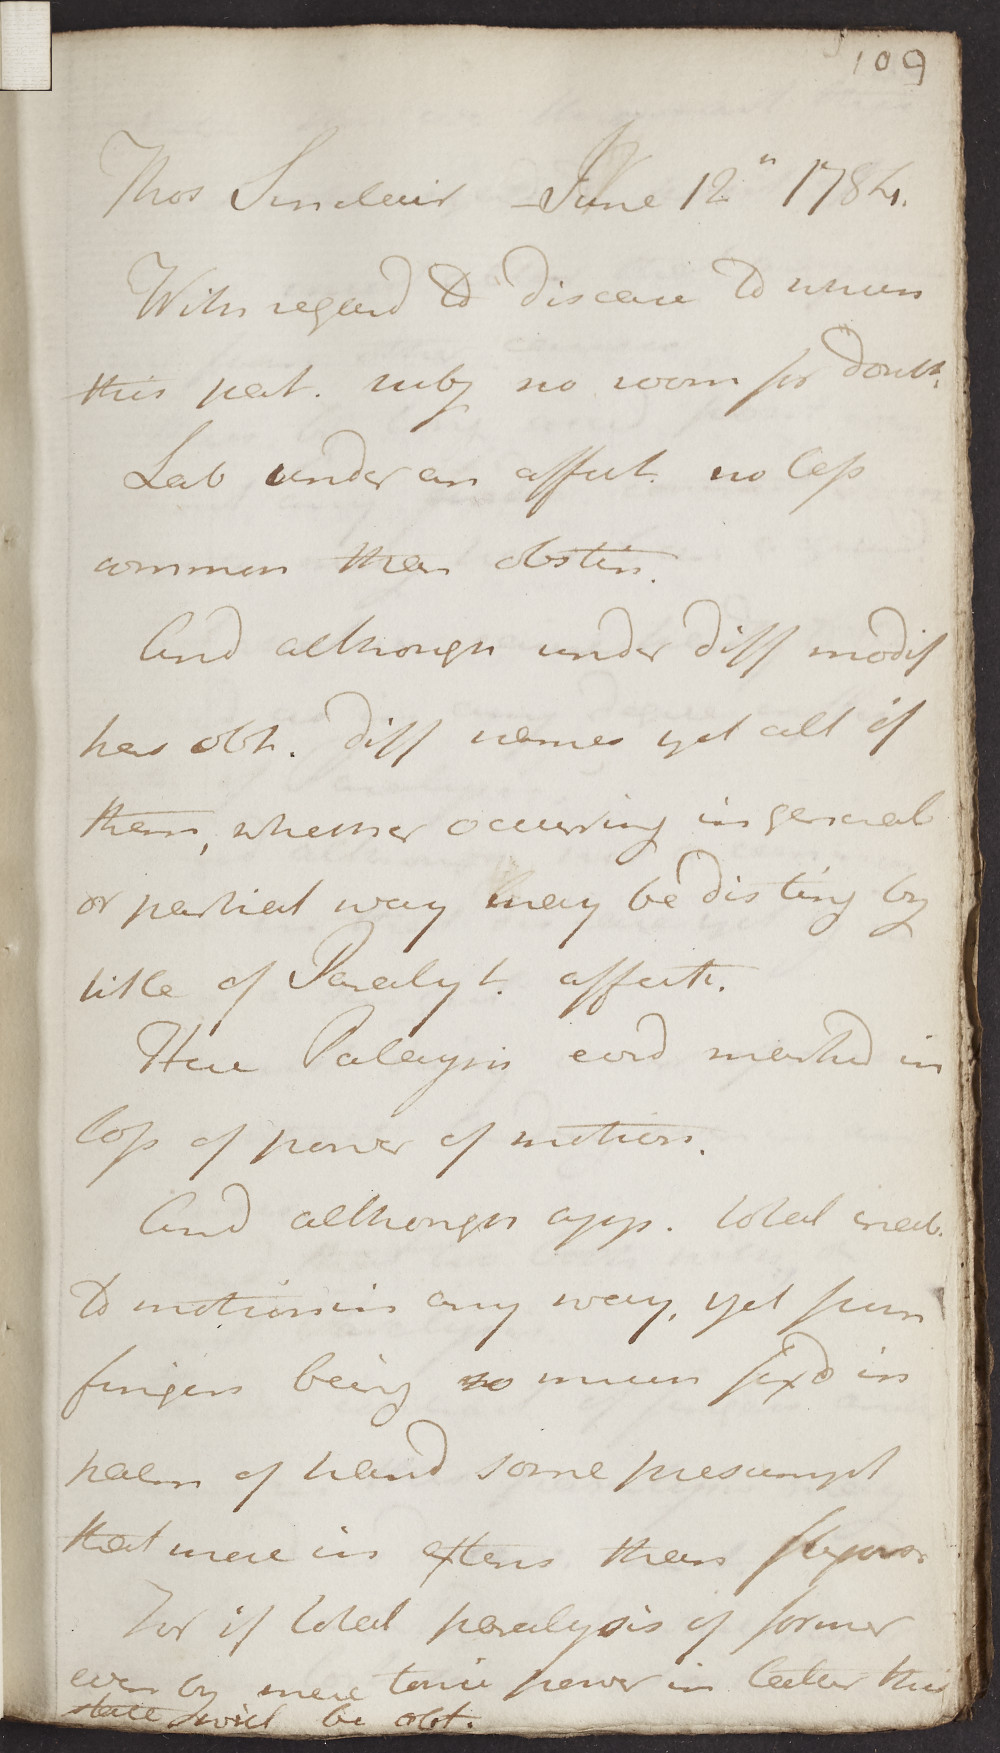 109
Thos Sinclair June 12th 1784.
With regard to disease to which
this pat. subj no room for doubt.
Lab under an affect. no less
common than obstin.
And although under diff modif
has obt. diff names yet all of
them, whether occurring in general
or partial way may be disting by
title of Paralyt. affect.
Here Palaysis evid marked in
loss of power of motion.
And although app. total inab.
to motion in any way, yet from
fingers being so much fixd in
palm of hand some presumpt
that more in extens than flexors
For if total paralysis of former
even by mere tonic power in latter this
state will be obt.